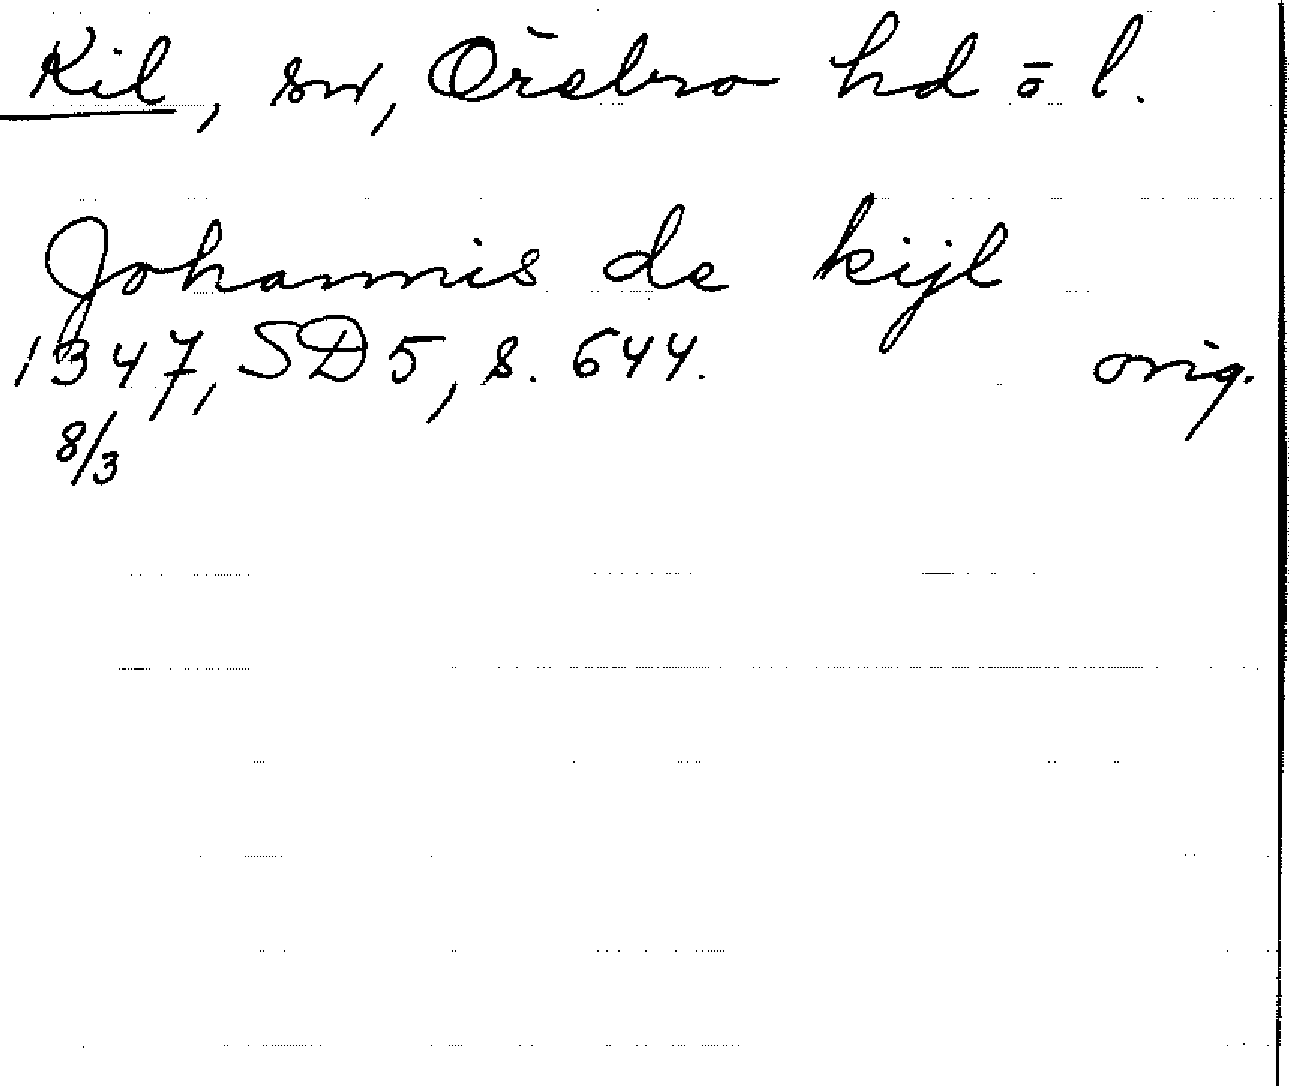 Kil, sn, Örebro hd ō l.
Johannis de kijl
1347, SD 5, s. 644. orig.
8/3